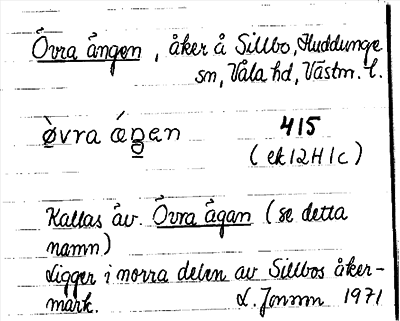 Övra ången, åker å Sillbo, Huddunge
sn, Våla hd, Västm. l.
415
(ek 12H1c)
Kallas äv. Övra ågan (se detta
namn)
Ligger i norra delen av Sillbos åker-
mark. 1971